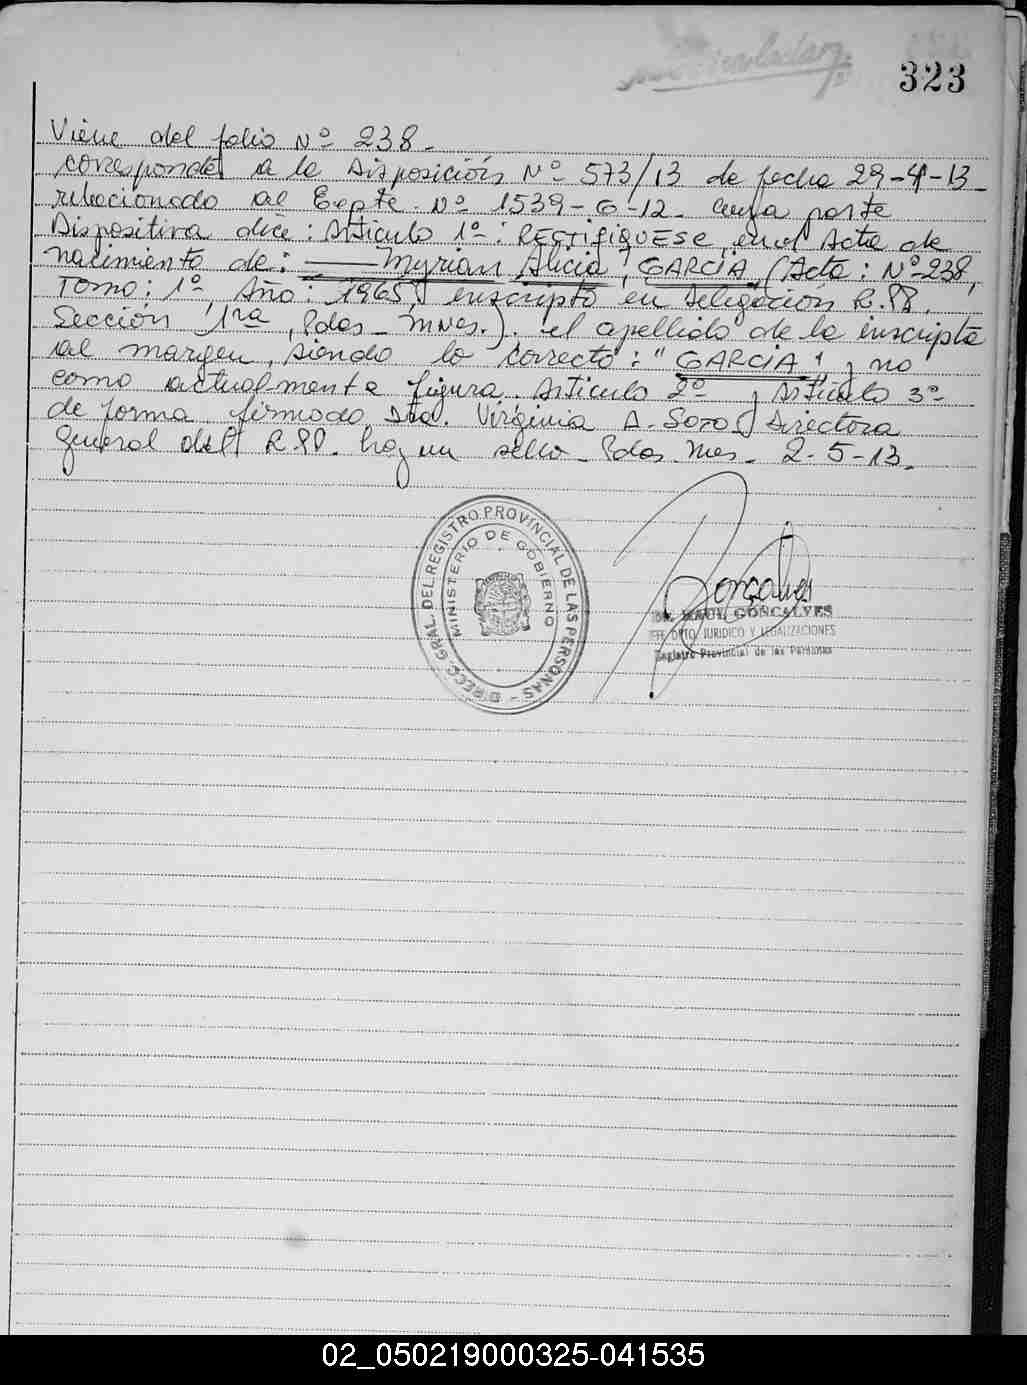 323
Viene del folio Nº 238.
corresponde a la Disposición Nº 573/13 de fecha 29-4-13
relacionado al Expte. Nº 1539-G-12. cuya parte
Dispositiva dice: Articulo 1º: RECTIFIQUESE, en el Acta de
nacimiento de: Myrian Alicia, GARCIA (Acta: Nº 238,
Tomo: 1º, Año: 1965, inscripto en Delegación R.PP.
Sección 1ra, Pdas - Mnes.). el apellido de la inscripta
al margen, siendo lo correcto: "GARCIA", y no
como actualmente figura. Articulo 2º y Articulo 3º
de forma firmado Dra. Virginia A. Soto Directora
General del R.PP. hay un sello. Pdas. Mnes. 2-5-13.
DIRECC. GRAL. DEL REGISTRO PROVINCIAL DE LAS PERSONAS -
MINISTERIO DE GOBIERNO
Gonçalves
Dr. RAUL GONCALVES
JEFE DPTO. JURIDICO Y LEGALIZACIONES
Registro Provincial de las Personas
02_050219000325-041535